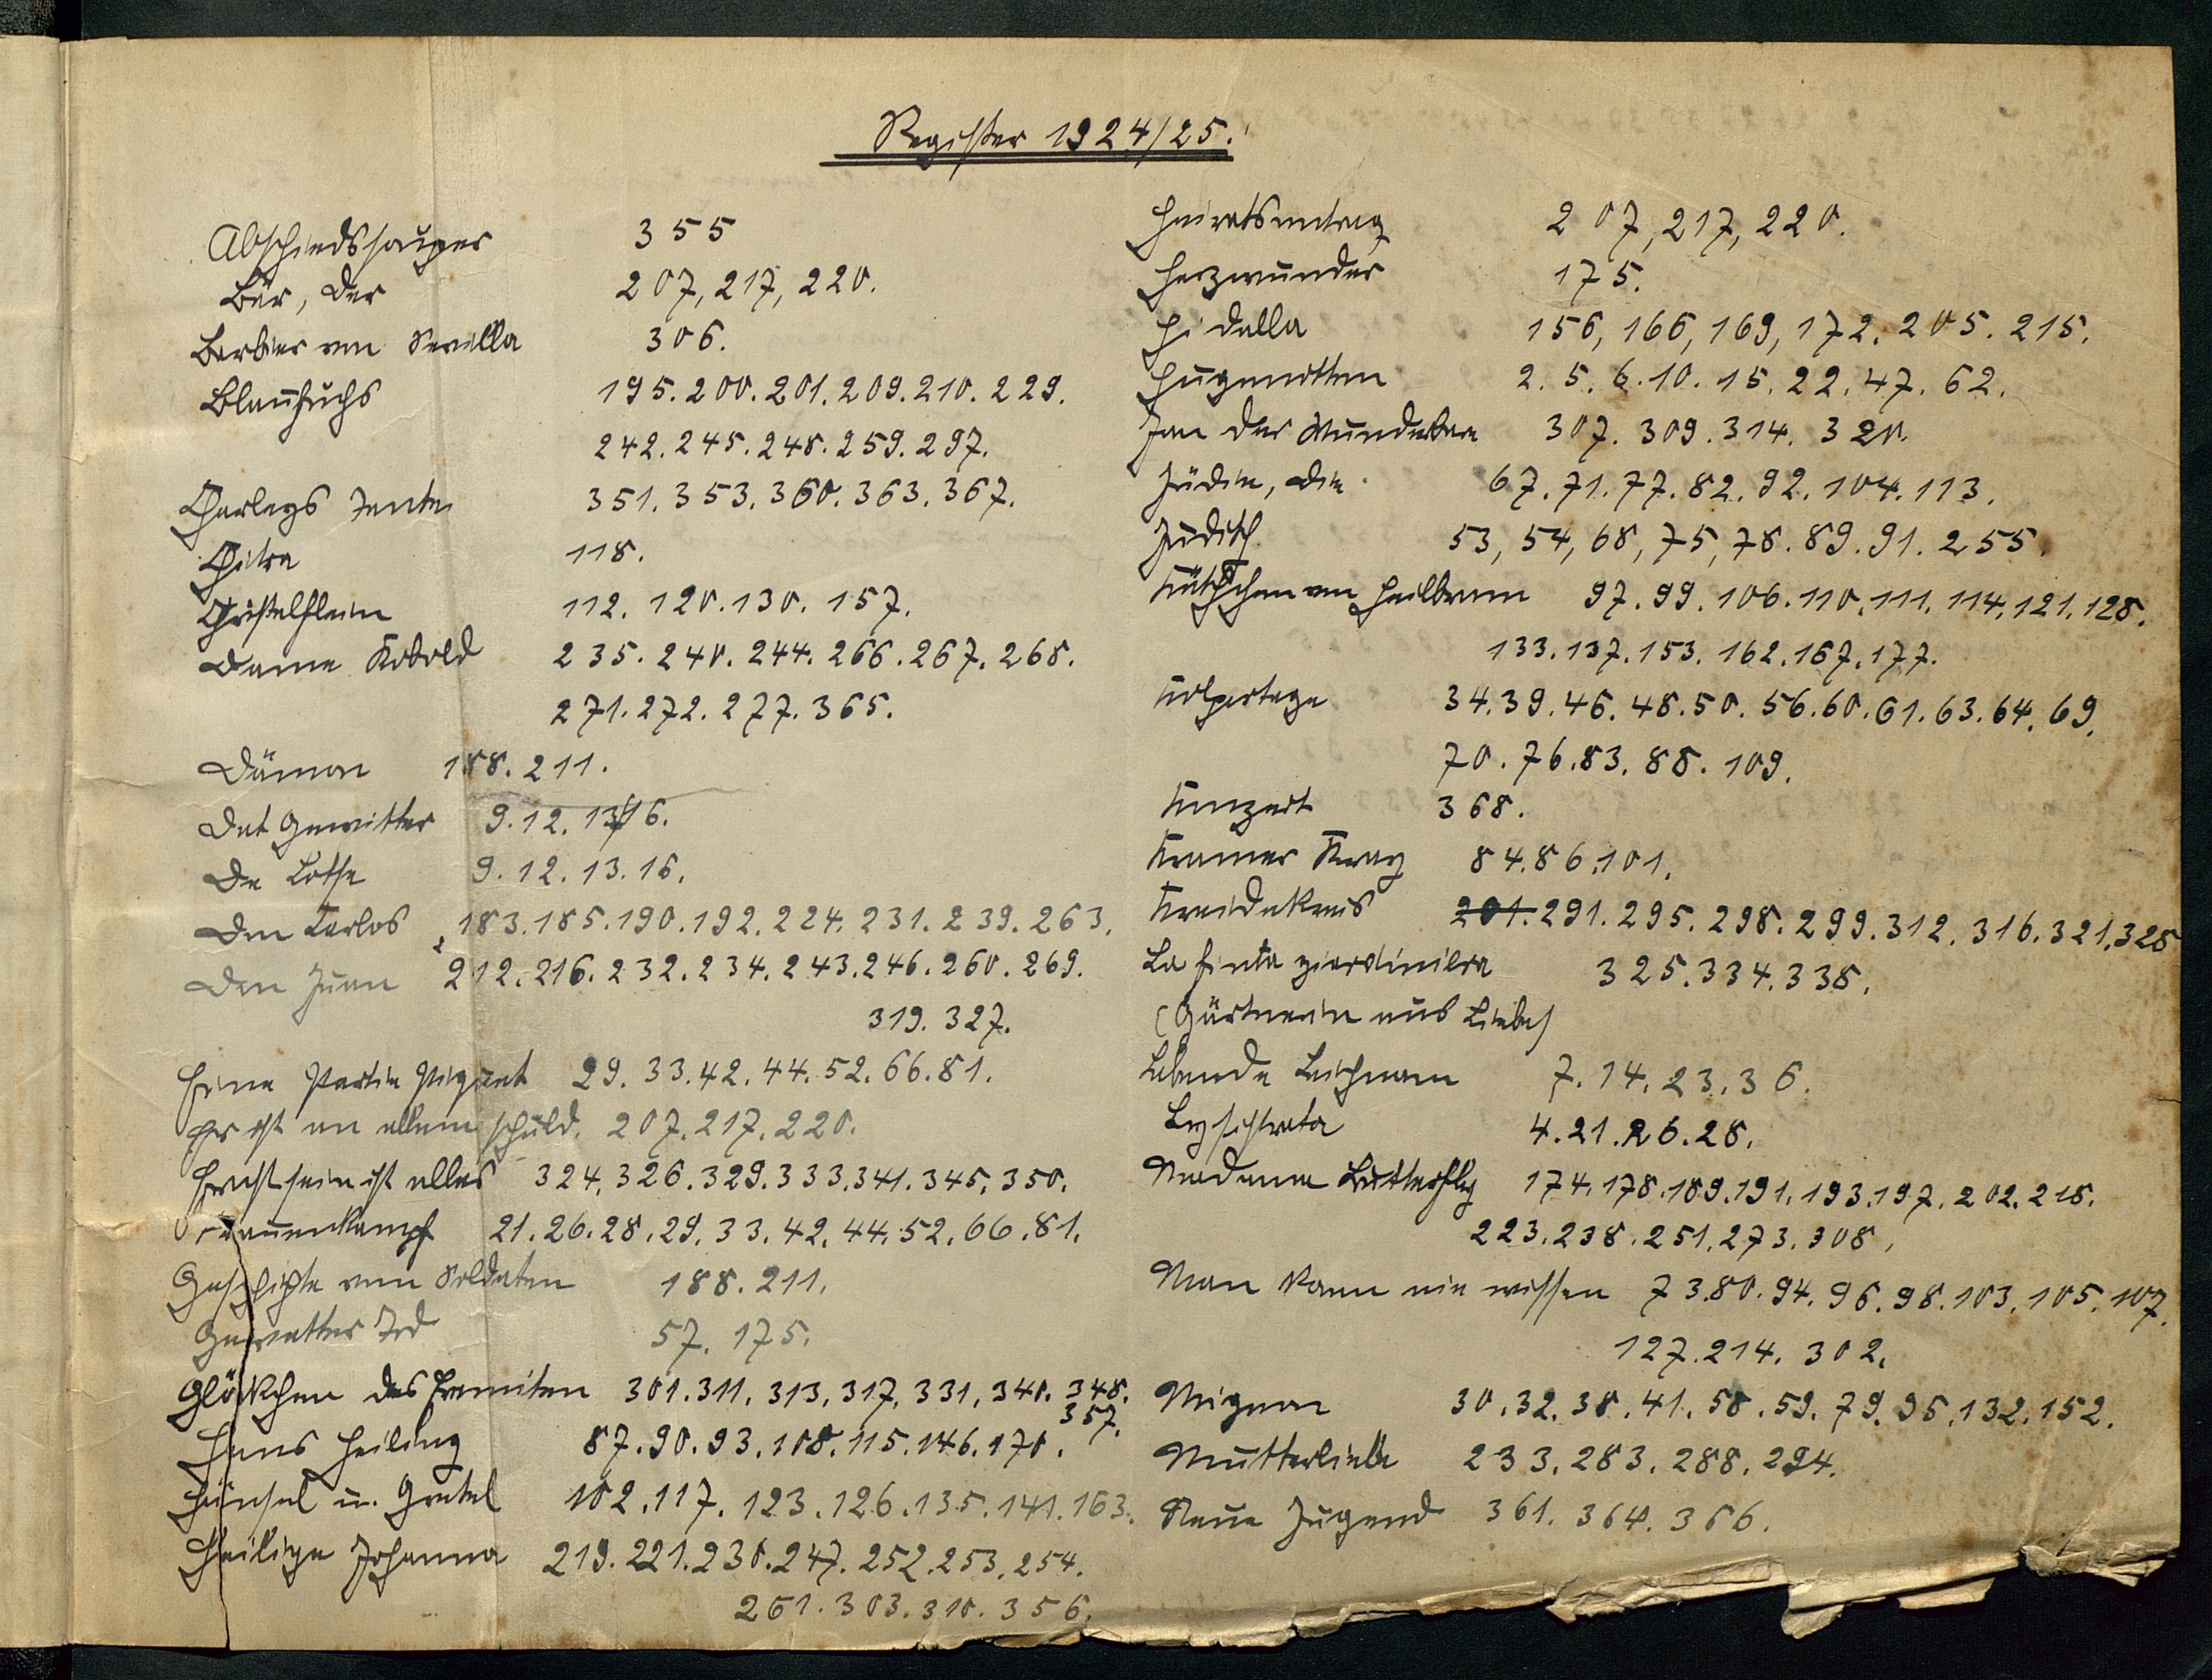 Register 1924/25.
Abschiedssouper 355
Bär, Der 207, 217, 220.
Barbier von Sevilla 306.
Blaufuchs 195. 200. 201. 209. 210. 229.
242. 245. 248. 259. 297.
Charleys Tante 351. 353. 360. 363. 367.
Chitra 118.
Christelflein 112. 120. 130. 157.
Dame Kobold 235. 240. 244. 266. 267. 268.
271. 272. 277. 365.
Dämon 188. 211.
Dat Gewitter 9. 12. 13. 16.
De Lotse 9. 12. 13. 16.
Don Carlos 183. 185. 190. 192. 224. 231. 239. 263.
Don Juan 212. 216. 232. 234. 243. 246. 260. 269.
319. 327.
Eine Partie Piquet 29. 33. 42. 44. 52. 66. 81.
Er ist an allem schuld. 207. 217. 220.
Ernst sein ist alles 324. 326. 329. 333. 341. 345. 350.
Frauenkampf 21. 26. 28. 29. 33. 42. 44. 52. 66. 81.
Geschichte vom Soldaten 188. 211.
Gevatter Tod 57. 175.
Glöckchen des Eremiten 301. 311. 313. 317. 331. 340. 348.
357.
Hans Heiling 87. 90. 93. 108. 115. 146. 170.
Hänsel u. Gretel 102. 117. 123. 126. 135. 141. 163.
Heilige Johanna 219. 221. 230. 247. 252. 253. 254.
261. 303. 310. 356.
Heiratsantrag 207, 217, 220.
Herzwunder 175.
Hidalla 156, 166, 169, 172. 205. 215.
Hugenotten 2. 5. 6. 10. 15. 22. 47. 62.
Jan der Wunderbare 307. 309. 314. 320.
Jüdin, die 67. 71. 77. 82. 92. 104. 113.
Judith 53, 54, 68, 75, 78. 89. 91. 255.
Käthchen von Heilbronn 97. 99. 106. 110. 111. 114. 121. 128.
133. 137. 153. 162. 167. 177.
Kolportage 34. 39. 46. 48. 50. 56. 60. 61. 63. 64. 69.
70. 76. 83. 88. 109.
Konzert 368.
Kramer Kray 84. 86. 101.
Kreidekreis 201. 291. 295. 298. 299. 312. 316. 321. 328
La finta giardiniera 325. 334. 338.
(Gärtnerin aus Liebe)
Lebende Leichnam 7. 14. 23. 36.
Lysistrata 4. 21. 26. 28.
Madame Butterfly 174. 178. 189. 191. 193. 197. 202. 218.
223. 238. 251. 273. 308.
Man kann nie wissen 73. 80. 94. 96. 98. 103. 105. 107.
127. 214. 302.
Mignon 30. 32. 38. 41. 58. 59. 79. 95. 132. 152.
Mutterliebe 233. 283. 288. 294.
Neue Jugend 361. 364. 366.